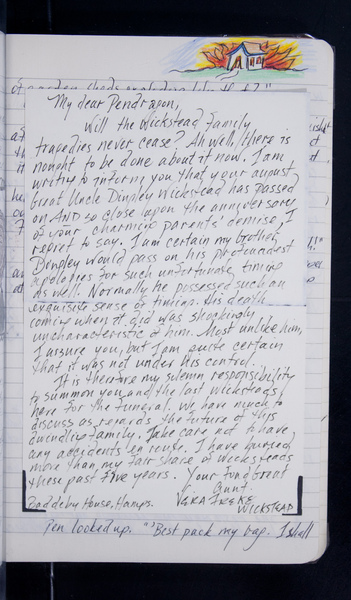 of garden sheds exploding like that?"
My dear Pendragon,
Will the Wickstead family
tragedies never cease? Ah well, there is
nought to be done about it now. I am
writing to inform you that your august
Great Uncle Dingley Wickstead has passed
on AND so close upon the anniversary
of your charming parents' demise, I
regret to say. I am certain my brother
Dingley would pass on his profoundest
apologies for such unfortunate timing
as well. Normally he possessed such an
exquisite sense of timing. His death
coming when it did was shockingly
uncharacteristic of him. Most unlike him,
I assure you, but I am quite certain
that it was not under his control.
It is therefore my solemn responsibility
to summon you and the last Wicksteads
here for the funeral. We have much to
discuss as regards the future of this
dwindling family. Take care not to have
any accidents en route. I have buried
more than my fair share of Wicksteads
these past five years. Your fond Great
Aunt,
VERA
WICKSTEAD
House, Hamps.
Pen looked up. "Best pack my bag. I shall